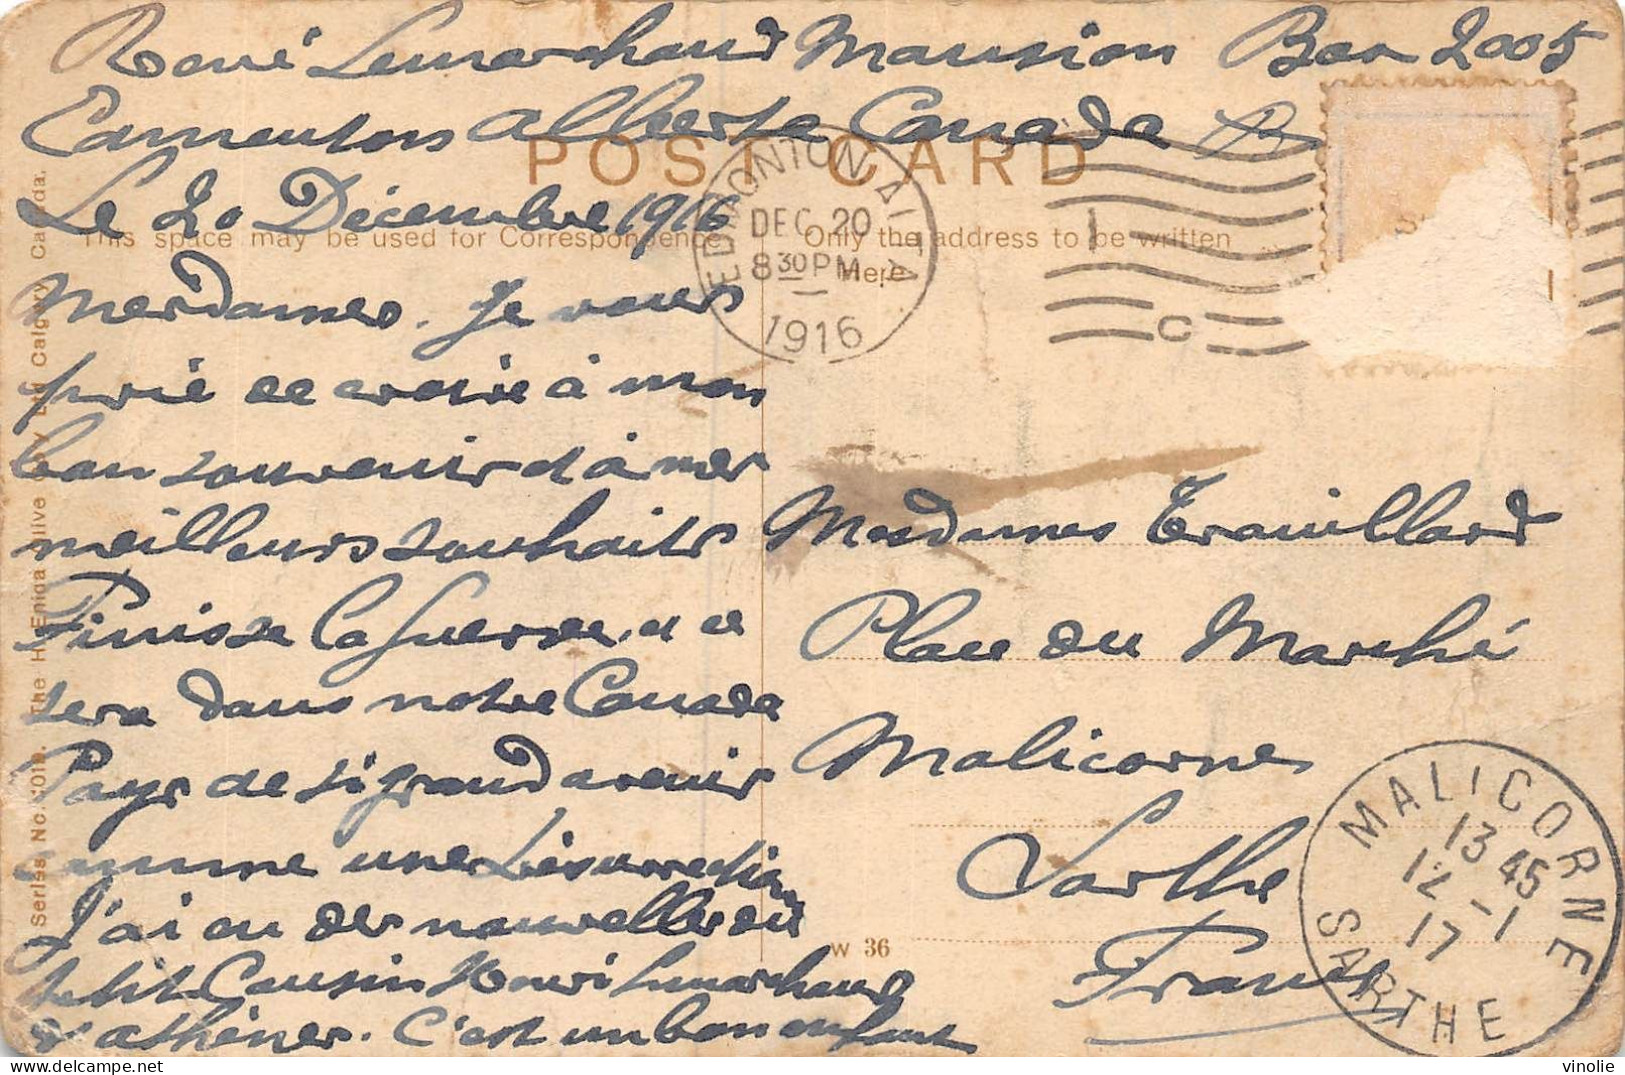 René Lemarchand Mansion Box 2005
Edmonton Alberta Canada
Le 20 Décembre 1916
Mesdames. Je vous
prie de croire à mon
bon souvenir et à mes
meilleurs souhaits
Finisse la Guerre. et ce
sera dans notre Canada
Pays de si grand avenir
comme une Résurrection
J'ai eu des nouvelles du
petit Cousin Henri Lemarchand
d'athènes. C'est un bon enfant
POST CARD
This space may be used for Correspondence
Only the address to be written
Here
EDMONTON ALTA
DEC 20
8 30 PM
1916
1
C
Mesdames Trouillard
Place du Marché
Malicorne
Sarthe
France
MALICORNE
13 45
12 -1
17
SARTHE
W 36
Calgary Canada.
vinolie